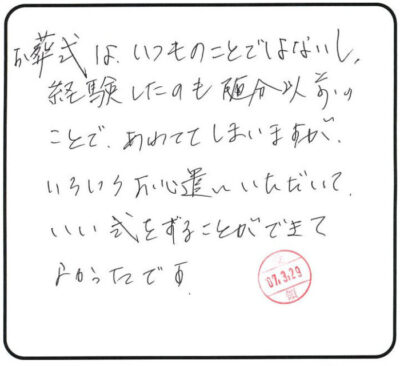 お葬式は、いつものことではないし、
経験したのも随分以前の
ことで、あわててしまいますが、
いろいろお心遣いいただいて、
いい式をすることができて
よかったです。
07.3.29